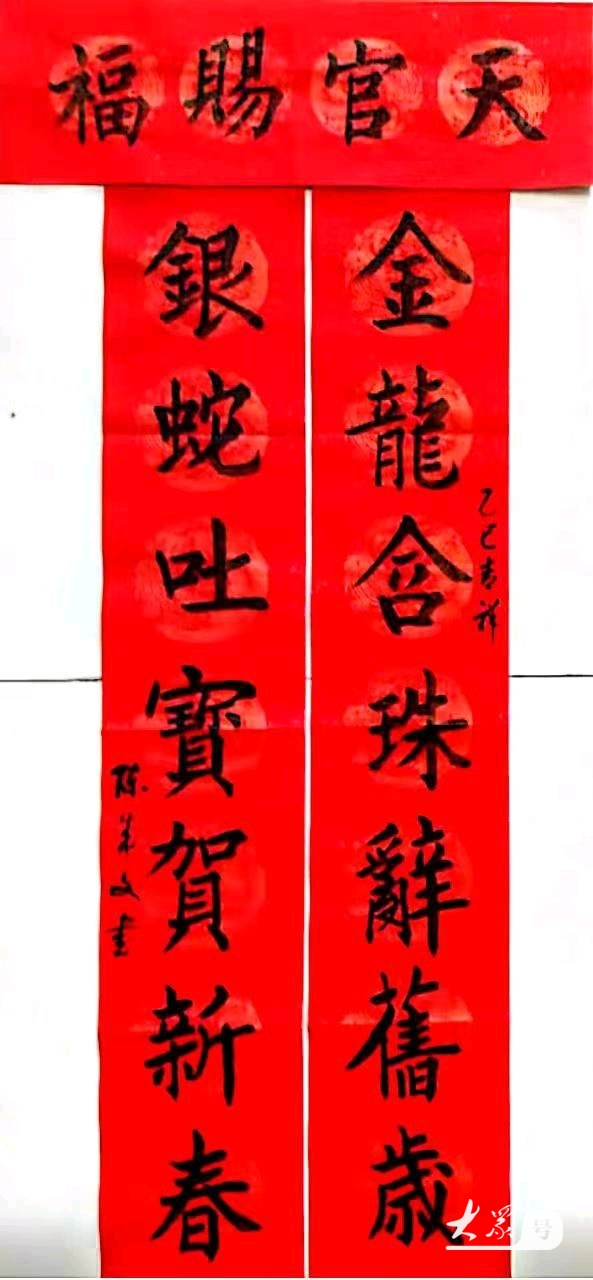 天官賜福
金龍含珠辭舊歲
乙巳吉祥
銀蛇吐寶賀新春
陈荣文書
大众号